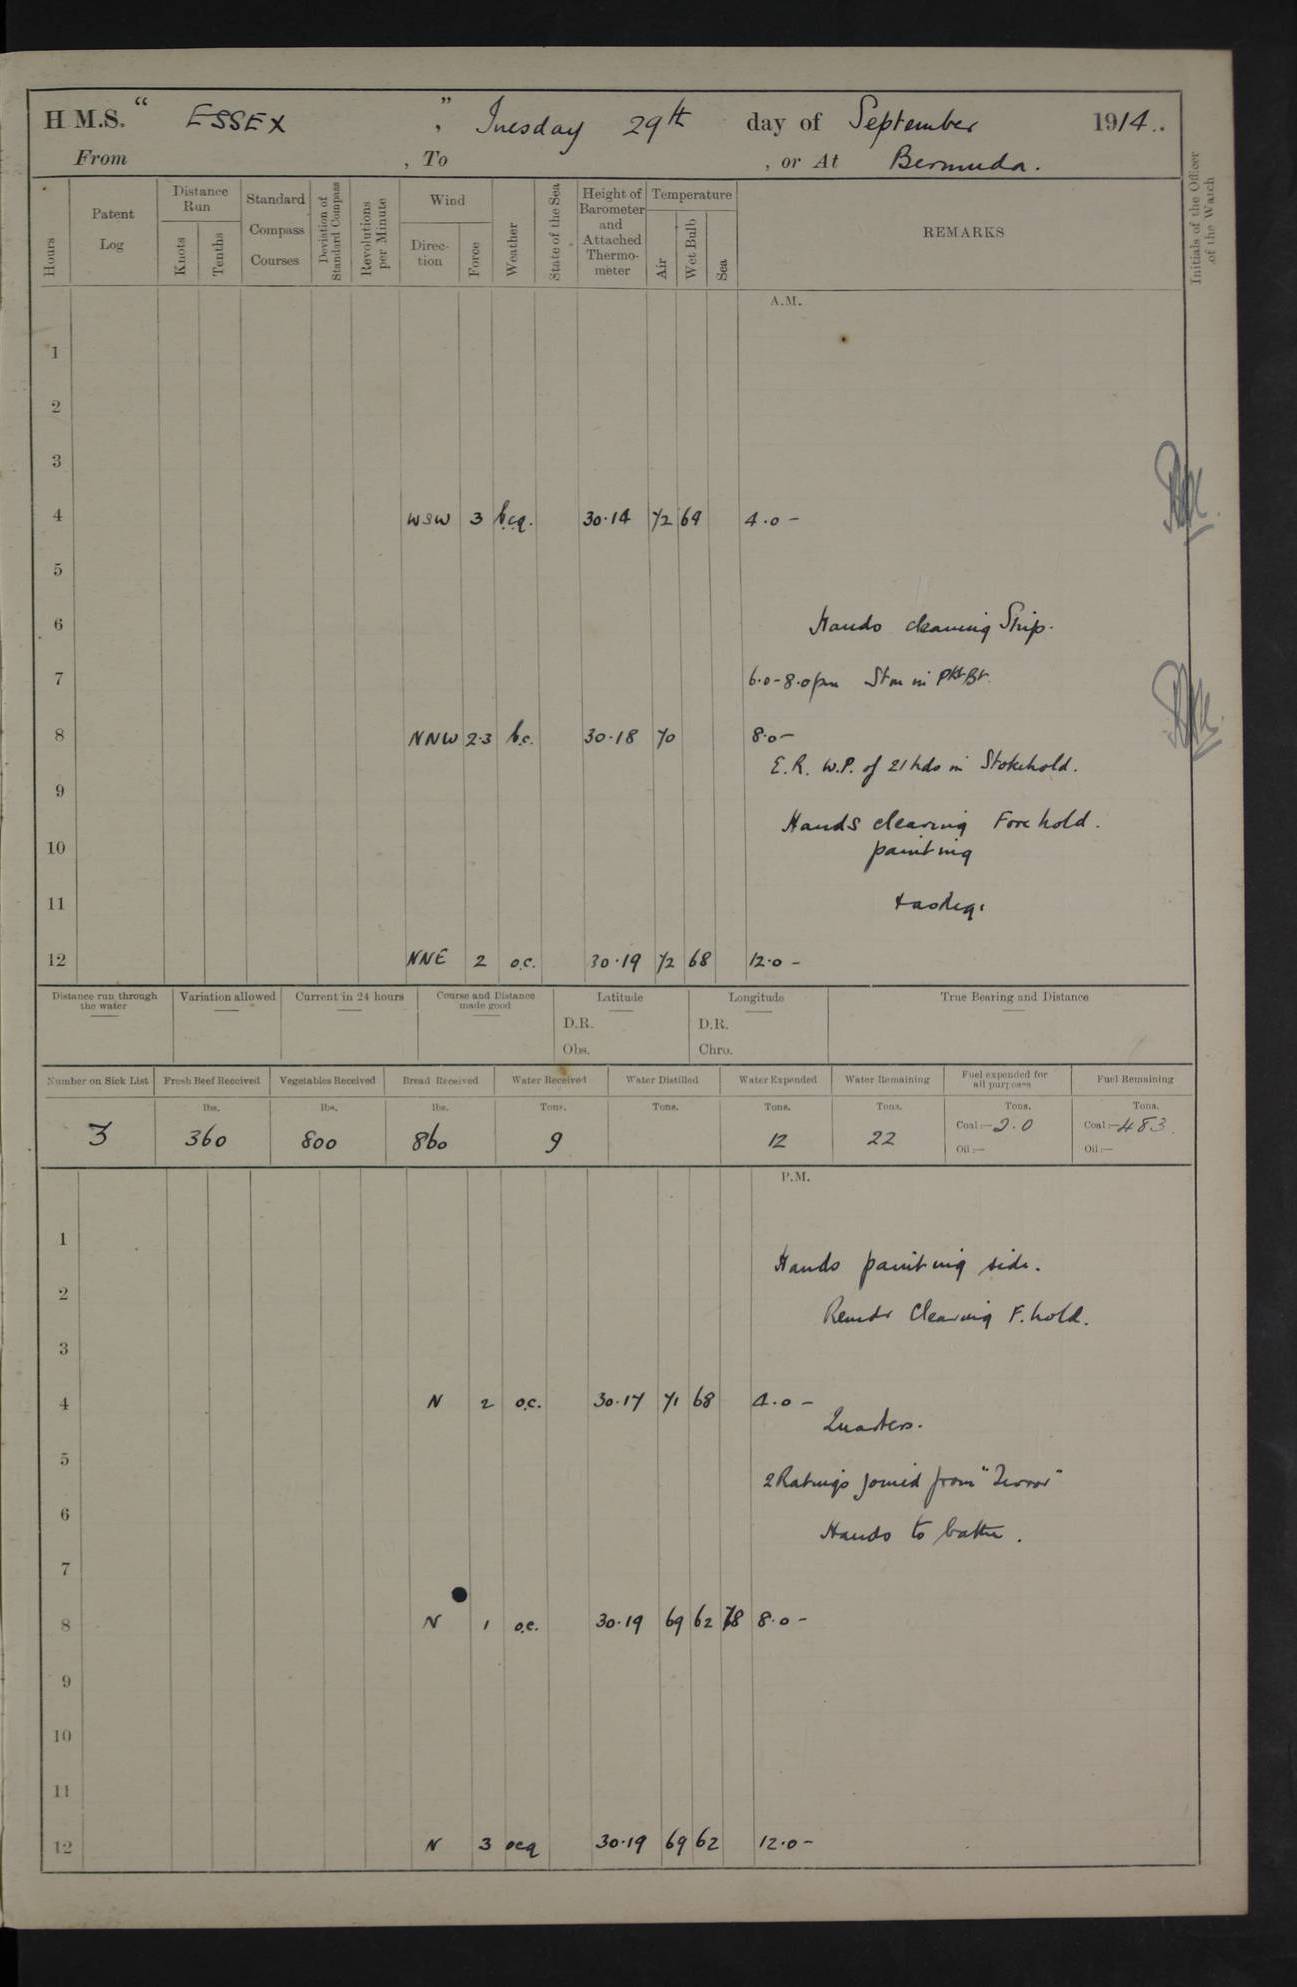 H.M.S. “ ESSEX ” , Tuesday 29th day of September 1914.
From , To , or At Bermuda.
Hours Patent Log Distance Run Knots Tenths Standard Compass Courses Deviation of Standard Compass Revolutions per Minute Wind Direction Force Weather State of the Sea Height of Barometer and Attached Thermometer Temperature Air Wet Bulb Sea REMARKS Initials of the Officer of the Watch
A.M.
1
2
3
4 WSW 3 b.c.q. 30.14 72 69 4.0 -
5
6 Hands cleaning Ship.
7 6.0-8.0 pm
8 NNW 2.3 b.c. 30.18 70 8.0 -
E.R. W.P. of 21 hds in Stokehold.
9
Hands clearing Fore hold.
10 painting
11
12 NNE 2 o.c. 30.19 72 68 12.0 -
Distance run through the water Variation allowed Current in 24 hours Course and Distance made good Latitude Longitude True Bearing and Distance
D.R. D.R.
Obs. Chro.
Number on Sick List Fresh Beef Received Vegetables Received Bread Received Water Received Water Distilled Water Expended Water Remaining Fuel expended for all purposes Fuel Remaining
lbs. lbs. lbs. Tons. Tons. Tons. Tons. Tons. Tons.
3 360 800 860 9 12 22 Coal:— 20 Coal:— 483
Oil:— Oil:—
P.M.
1
Hands painting side.
2
Remdr Clearing F. hold.
3
4 N 2 o.c. 30.17 71 68 4.0 -
Quarters.
5
2 Ratings joined from "Terror"
6
Hands to bathe.
7
8 N 1 o.c. 30.19 69 62 78 8.0 -
9
10
11
12 N 3 ocq 30.19 69 62 12.0 -